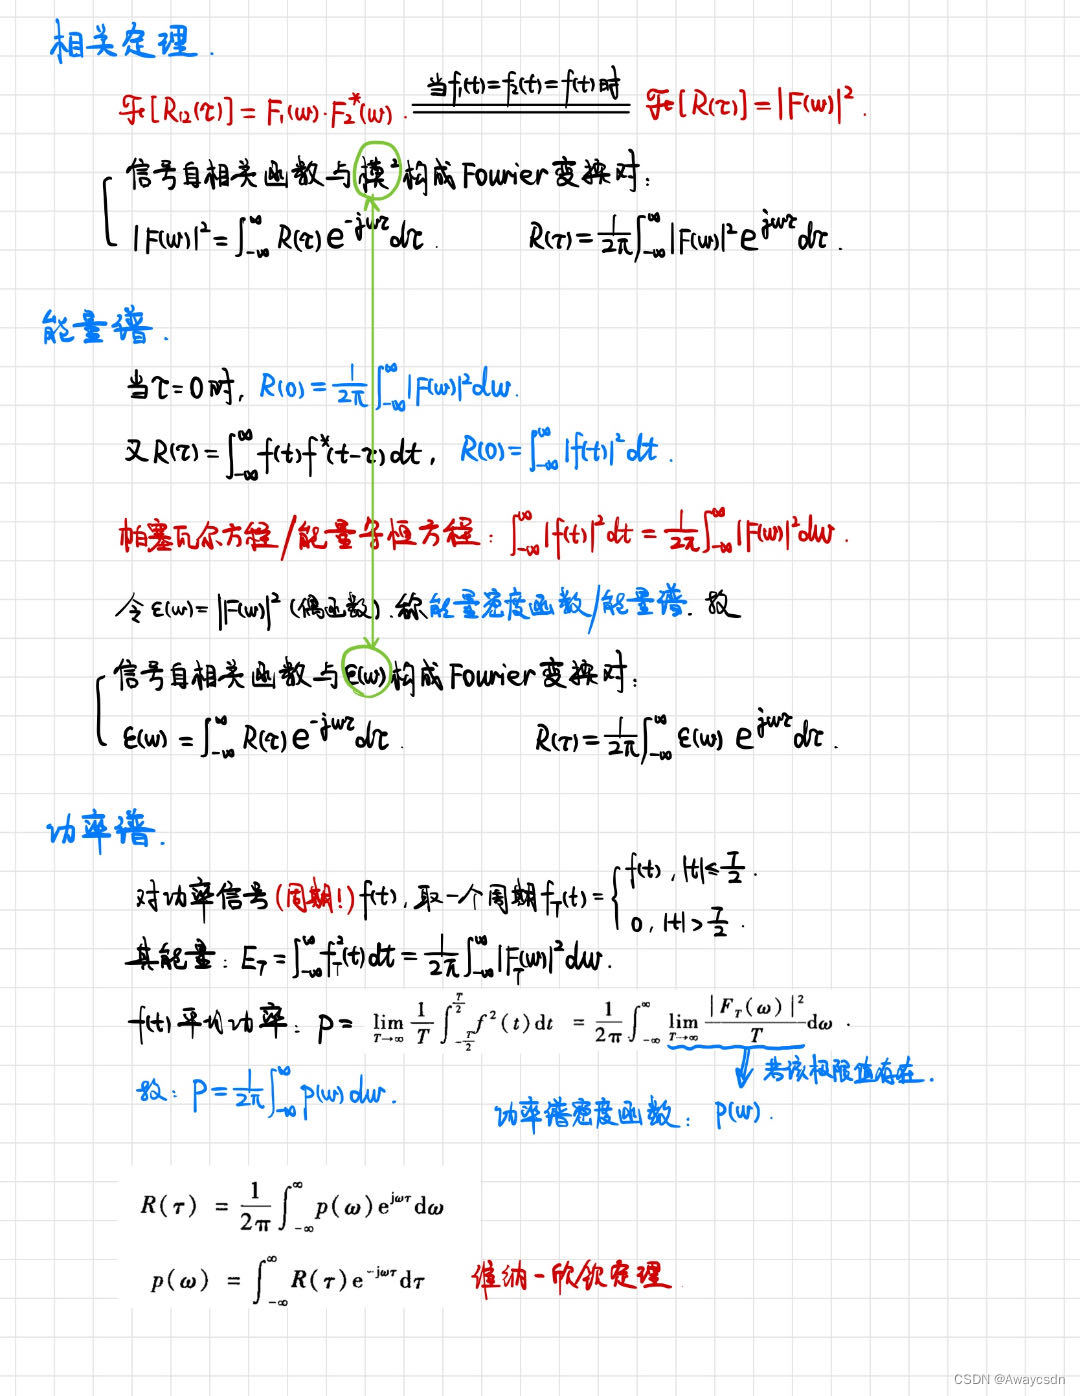 相关定理.
ℱ[R₁₂(τ)] = F₁(ω)·F₂*(ω). 当f₁(t)=f₂(t)=f(t)时 ℱ[R(τ)] = |F(ω)|².
信号自相关函数与模²构成Fourier变换对:
|F(ω)|² = ∫_{-∞}^{∞} R(τ) e^{-jωτ} dτ. R(τ) = 1/2π ∫_{-∞}^{∞} |F(ω)|² e^{jωτ} dτ.
能量谱.
当τ=0时, R(0) = 1/2π ∫_{-∞}^{∞} |F(ω)|² dω.
又R(τ) = ∫_{-∞}^{∞} f(t) f*(t-τ) dt, R(0) = ∫_{-∞}^{∞} |f(t)|² dt.
帕塞瓦尔方程/能量守恒方程: ∫_{-∞}^{∞} |f(t)|² dt = 1/2π ∫_{-∞}^{∞} |F(ω)|² dω.
令 ε(ω) = |F(ω)|² (偶函数). 称能量密度函数/能量谱. 故
信号自相关函数与ε(ω)构成Fourier变换对:
ε(ω) = ∫_{-∞}^{∞} R(τ) e^{-jωτ} dτ. R(τ) = 1/2π ∫_{-∞}^{∞} ε(ω) e^{jωτ} dτ.
功率谱.
对功率信号(周期!) f(t), 取一个周期 f_T(t) = { f(t), |t| ≤ T/2.
0, |t| > T/2.
其能量: E_T = ∫_{-∞}^{∞} f_T²(t) dt = 1/2π ∫_{-∞}^{∞} |F_T(ω)|² dω.
f(t)平均功率: P = lim_{T→∞} 1/T ∫_{-T/2}^{T/2} f²(t)dt = 1/2π ∫_{-∞}^{∞} lim_{T→∞} |F_T(ω)|²/T dω.
若该极限值存在.
故: P = 1/2π ∫_{-∞}^{∞} p(ω) dω.
功率谱密度函数: p(ω).
R(τ) = 1/2π ∫_{-∞}^{∞} p(ω)e^{jωτ}dω
p(ω) = ∫_{-∞}^{∞} R(τ)e^{-jωτ}dτ 维纳-欣钦定理
CSDN @Awaycsdn